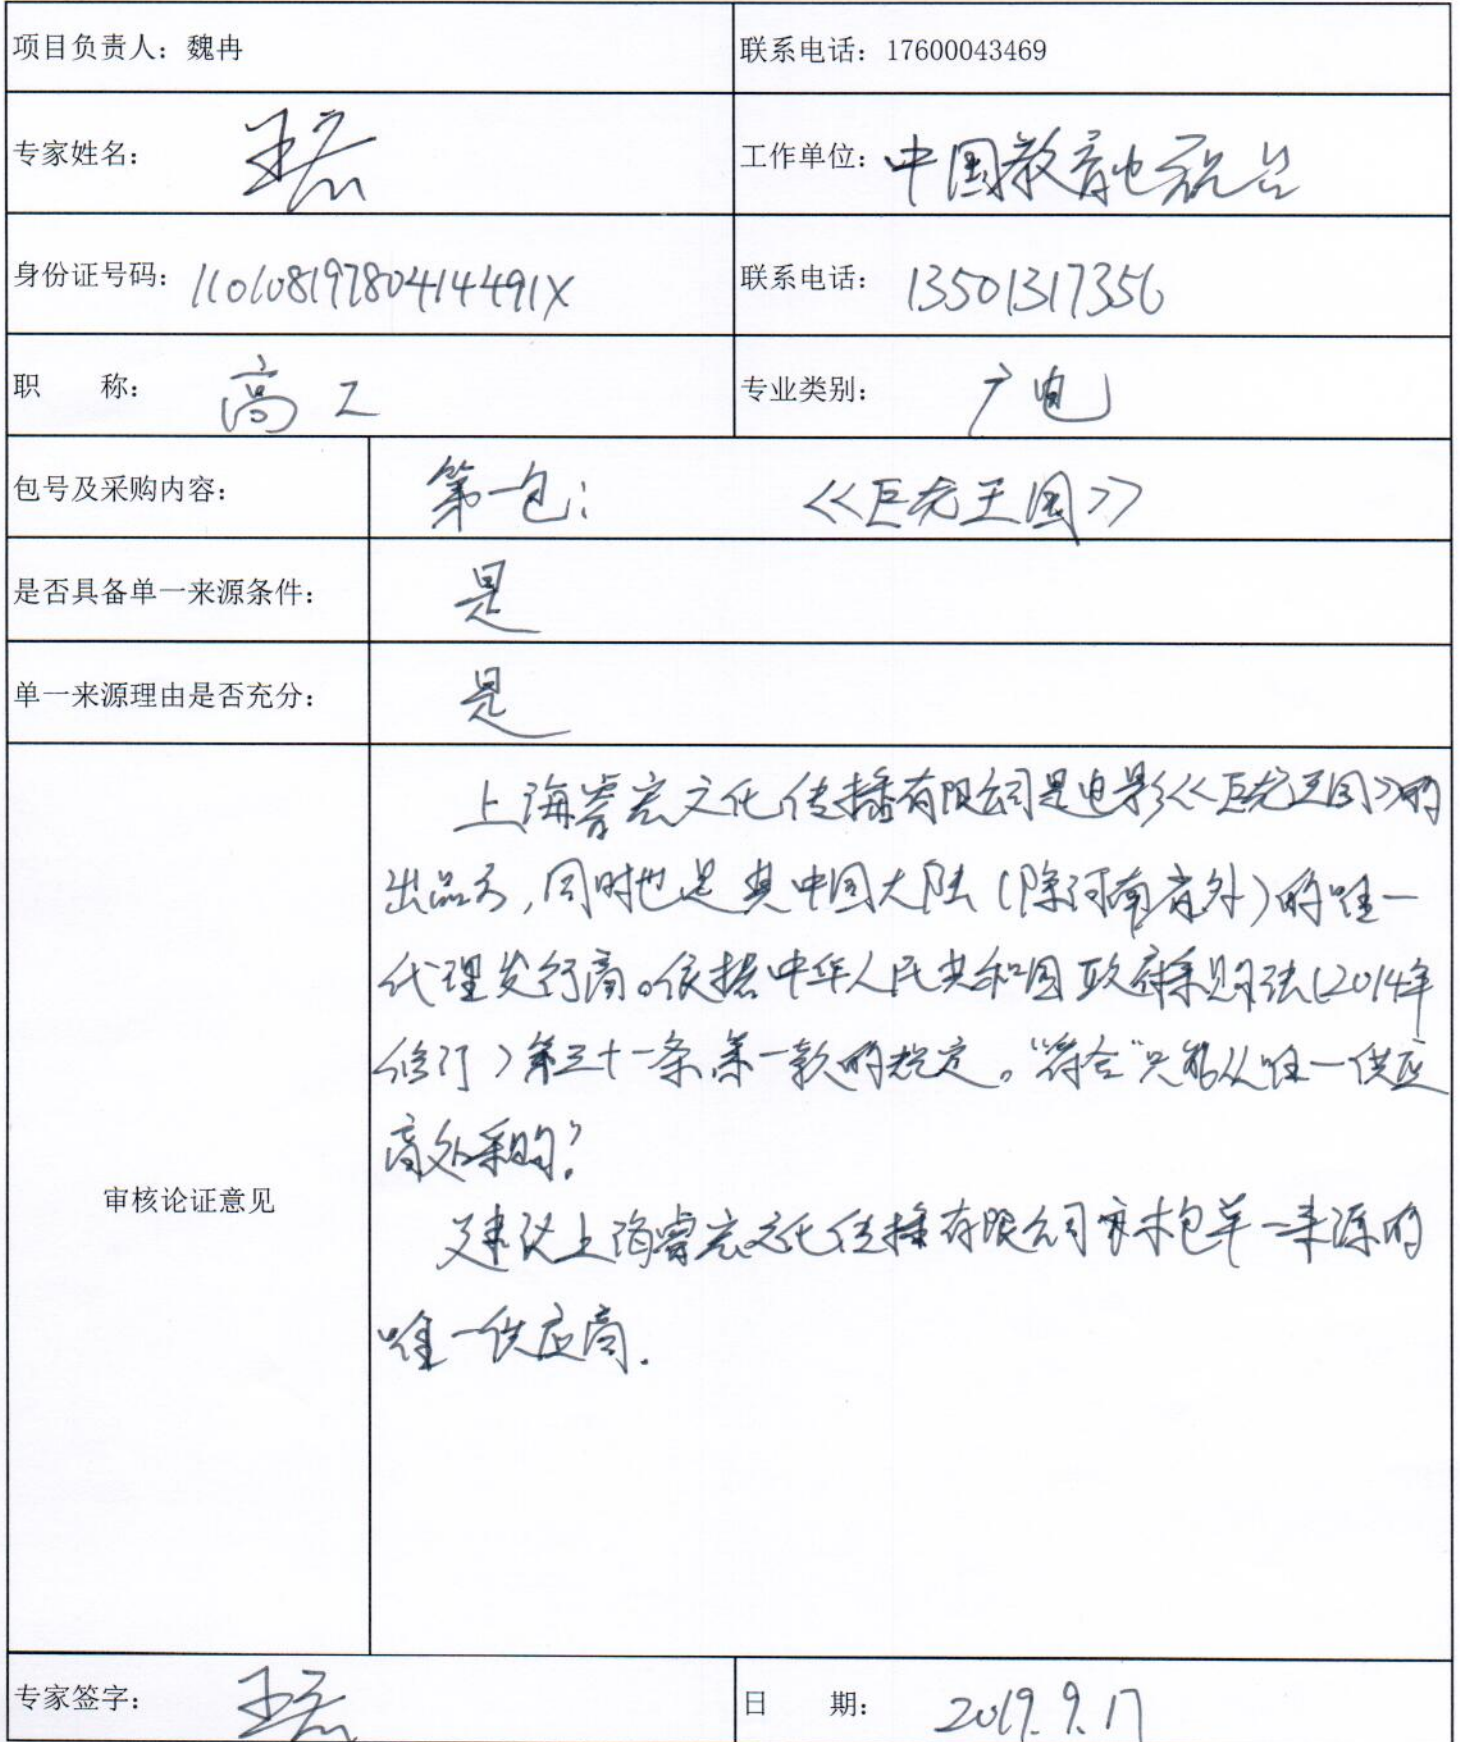 项目负责人：魏冉 联系电话：17600043469
专家姓名： 王 工作单位：中国教育电视台
身份证号码：11010819780414491X 联系电话：13501317356
职 称： 高工 专业类别： 广电
包号及采购内容： 第一包： 《巨龙王国》
是否具备单一来源条件： 是
单一来源理由是否充分： 是
上海睿宏文化传播有限公司是电影《巨龙王国》的
出品方，同时也是其中国大陆（除河南省外）的唯一
代理发行商。依据中华人民共和国政府采购法（2014年
修订）第三十一条第一款的规定。“符合”只能从唯一供应
商处采购？
审核论证意见
建议上海睿宏文化传播有限公司为本包单一来源的
唯一供应商.
专家签字： 王 日 期： 2019.9.17